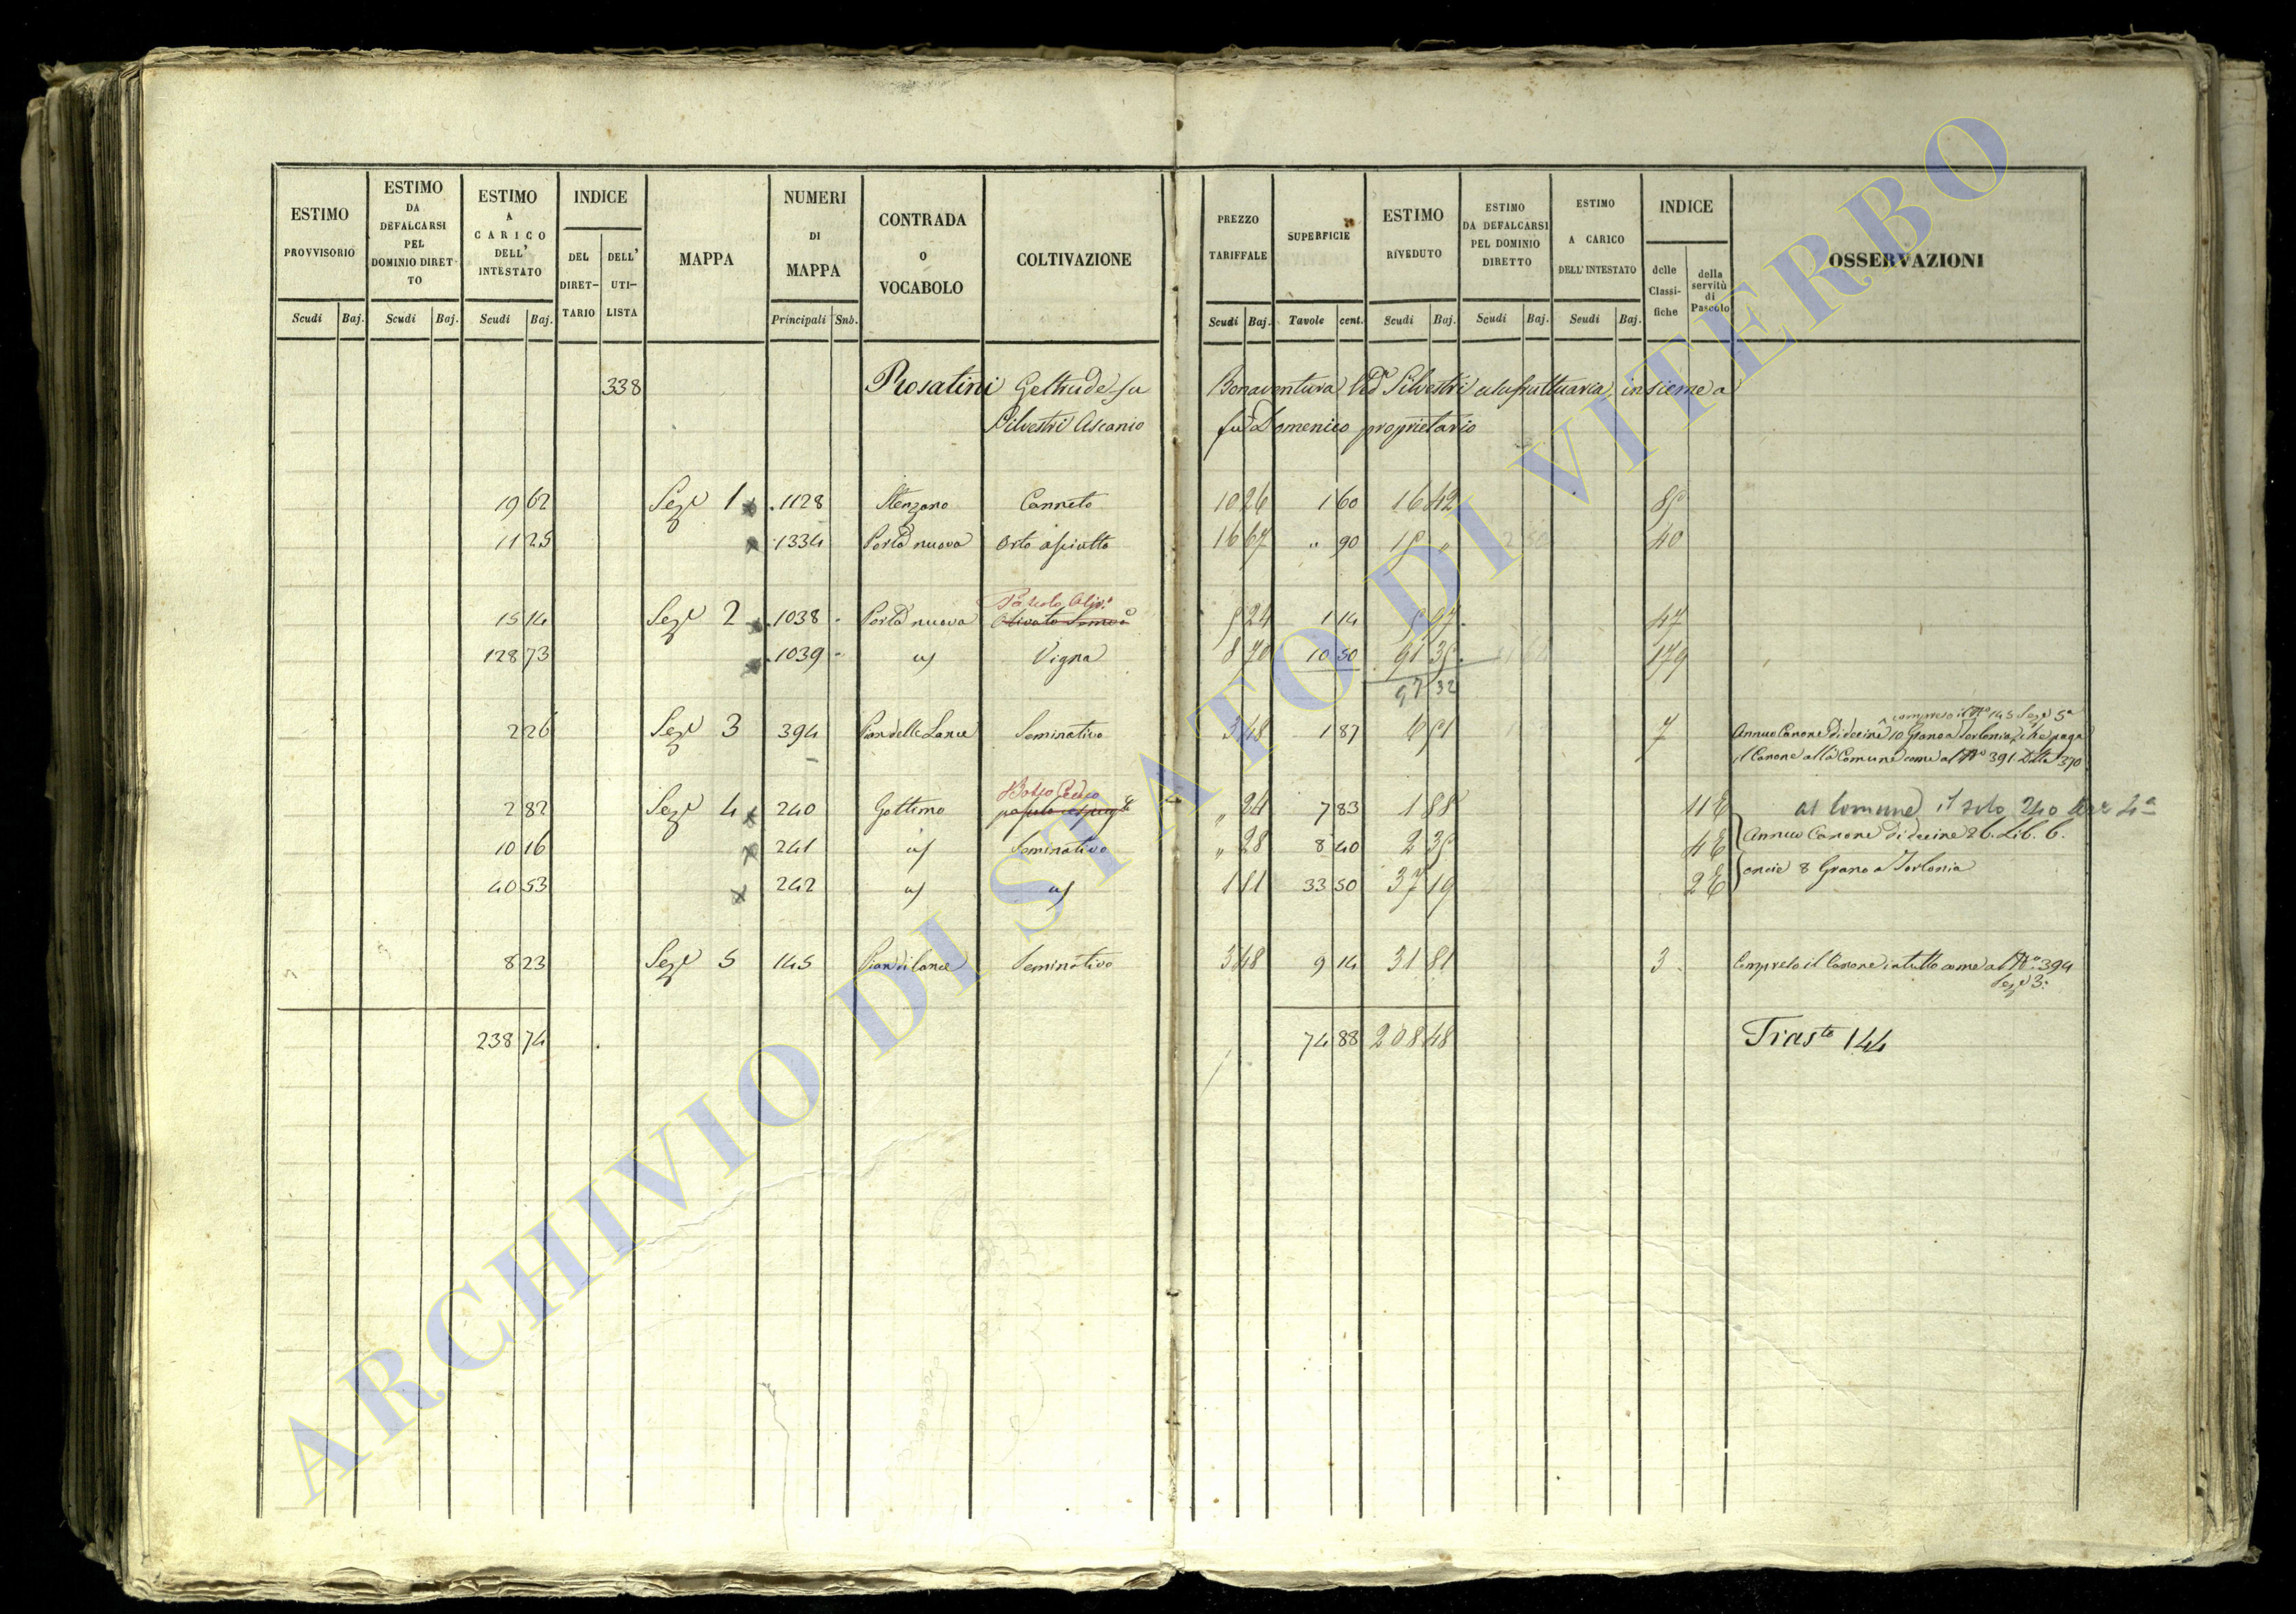 ESTIMO PROVVISORIO Scudi Baj.
ESTIMO DA DEFALCARSI PEL DOMINIO DIRETTO Scudi Baj.
ESTIMO A CARICO DELL' INTESTATO Scudi Baj.
INDICE DEL DIRET-TARIO DELL' UTI-LISTA
MAPPA
NUMERI DI MAPPA Principali Snb.
CONTRADA O VOCABOLO
COLTIVAZIONE
PREZZO TARIFFALE Scudi Baj.
SUPERFICIE Tavole cent.
ESTIMO RIVEDUTO Scudi Baj.
ESTIMO DA DEFALCARSI PEL DOMINIO DIRETTO Scudi Baj.
ESTIMO A CARICO DELL' INTESTATO Scudi Baj.
INDICE delle Classi-fiche della servitù di Pascolo
OSSERVAZIONI
338 Rosatini Geltrude fu Bonaventura Ved.a Silvestri usufruttuaria, insieme a
Silvestri Ascanio fu Domenico proprietario
19 62 Sez.e 1 1128 Stenzano Canneto 10 26 1 60 16 42 85
11 25 1334 Porta nuova Orto asciutto 16 67 " 90 15 " 40
Pascolo Oliv.o
15 14 Sez.e 2 1038 Porta nuova Olivato 5 24 1 14 5 97 47
128 73 1039 Vigna 8 70 10 50 91 35 179
97 32
compreso il N.o 145 Sez.e 5a
2 26 Sez.e 3 394 Pian delle Lance Seminativo 3 48 1 87 6 51 7 Annuo Canone di decine 10 Grano a Torlonia, che paga
il Canone alla Comune come al N.o 391. Ditta 370
Bosco Ceduo
2 82 Sez.e 4 240 Gottimo pascolo " 24 7 83 1 88 11 E al Comune il solo 240 Sez.e 4a
10 16 241 Seminativo " 28 8 40 2 35 4 E Annuo Canone di decine 26. Lib. 6.
40 53 242 1 11 33 50 37 19 2 E oncie 8 Grano a Torlonia
8 23 Sez.e 5 145 Pian di lance Seminativo 3 48 9 14 31 81 3 Compreso il Canone in tutto come al N.o 394
Sez.e 3a
238 74 74 88 208 48 Tras.to 144
ARCHIVIO DI STATO DI VITERBO